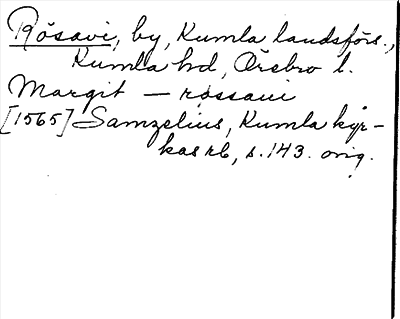 Rösavi, by, Kumla landsförs.,
Kumla hd, Örebro l.
Margit — røssaui
[1565] Samzelius, Kumla kyr-
kas rb, s. 143. orig.